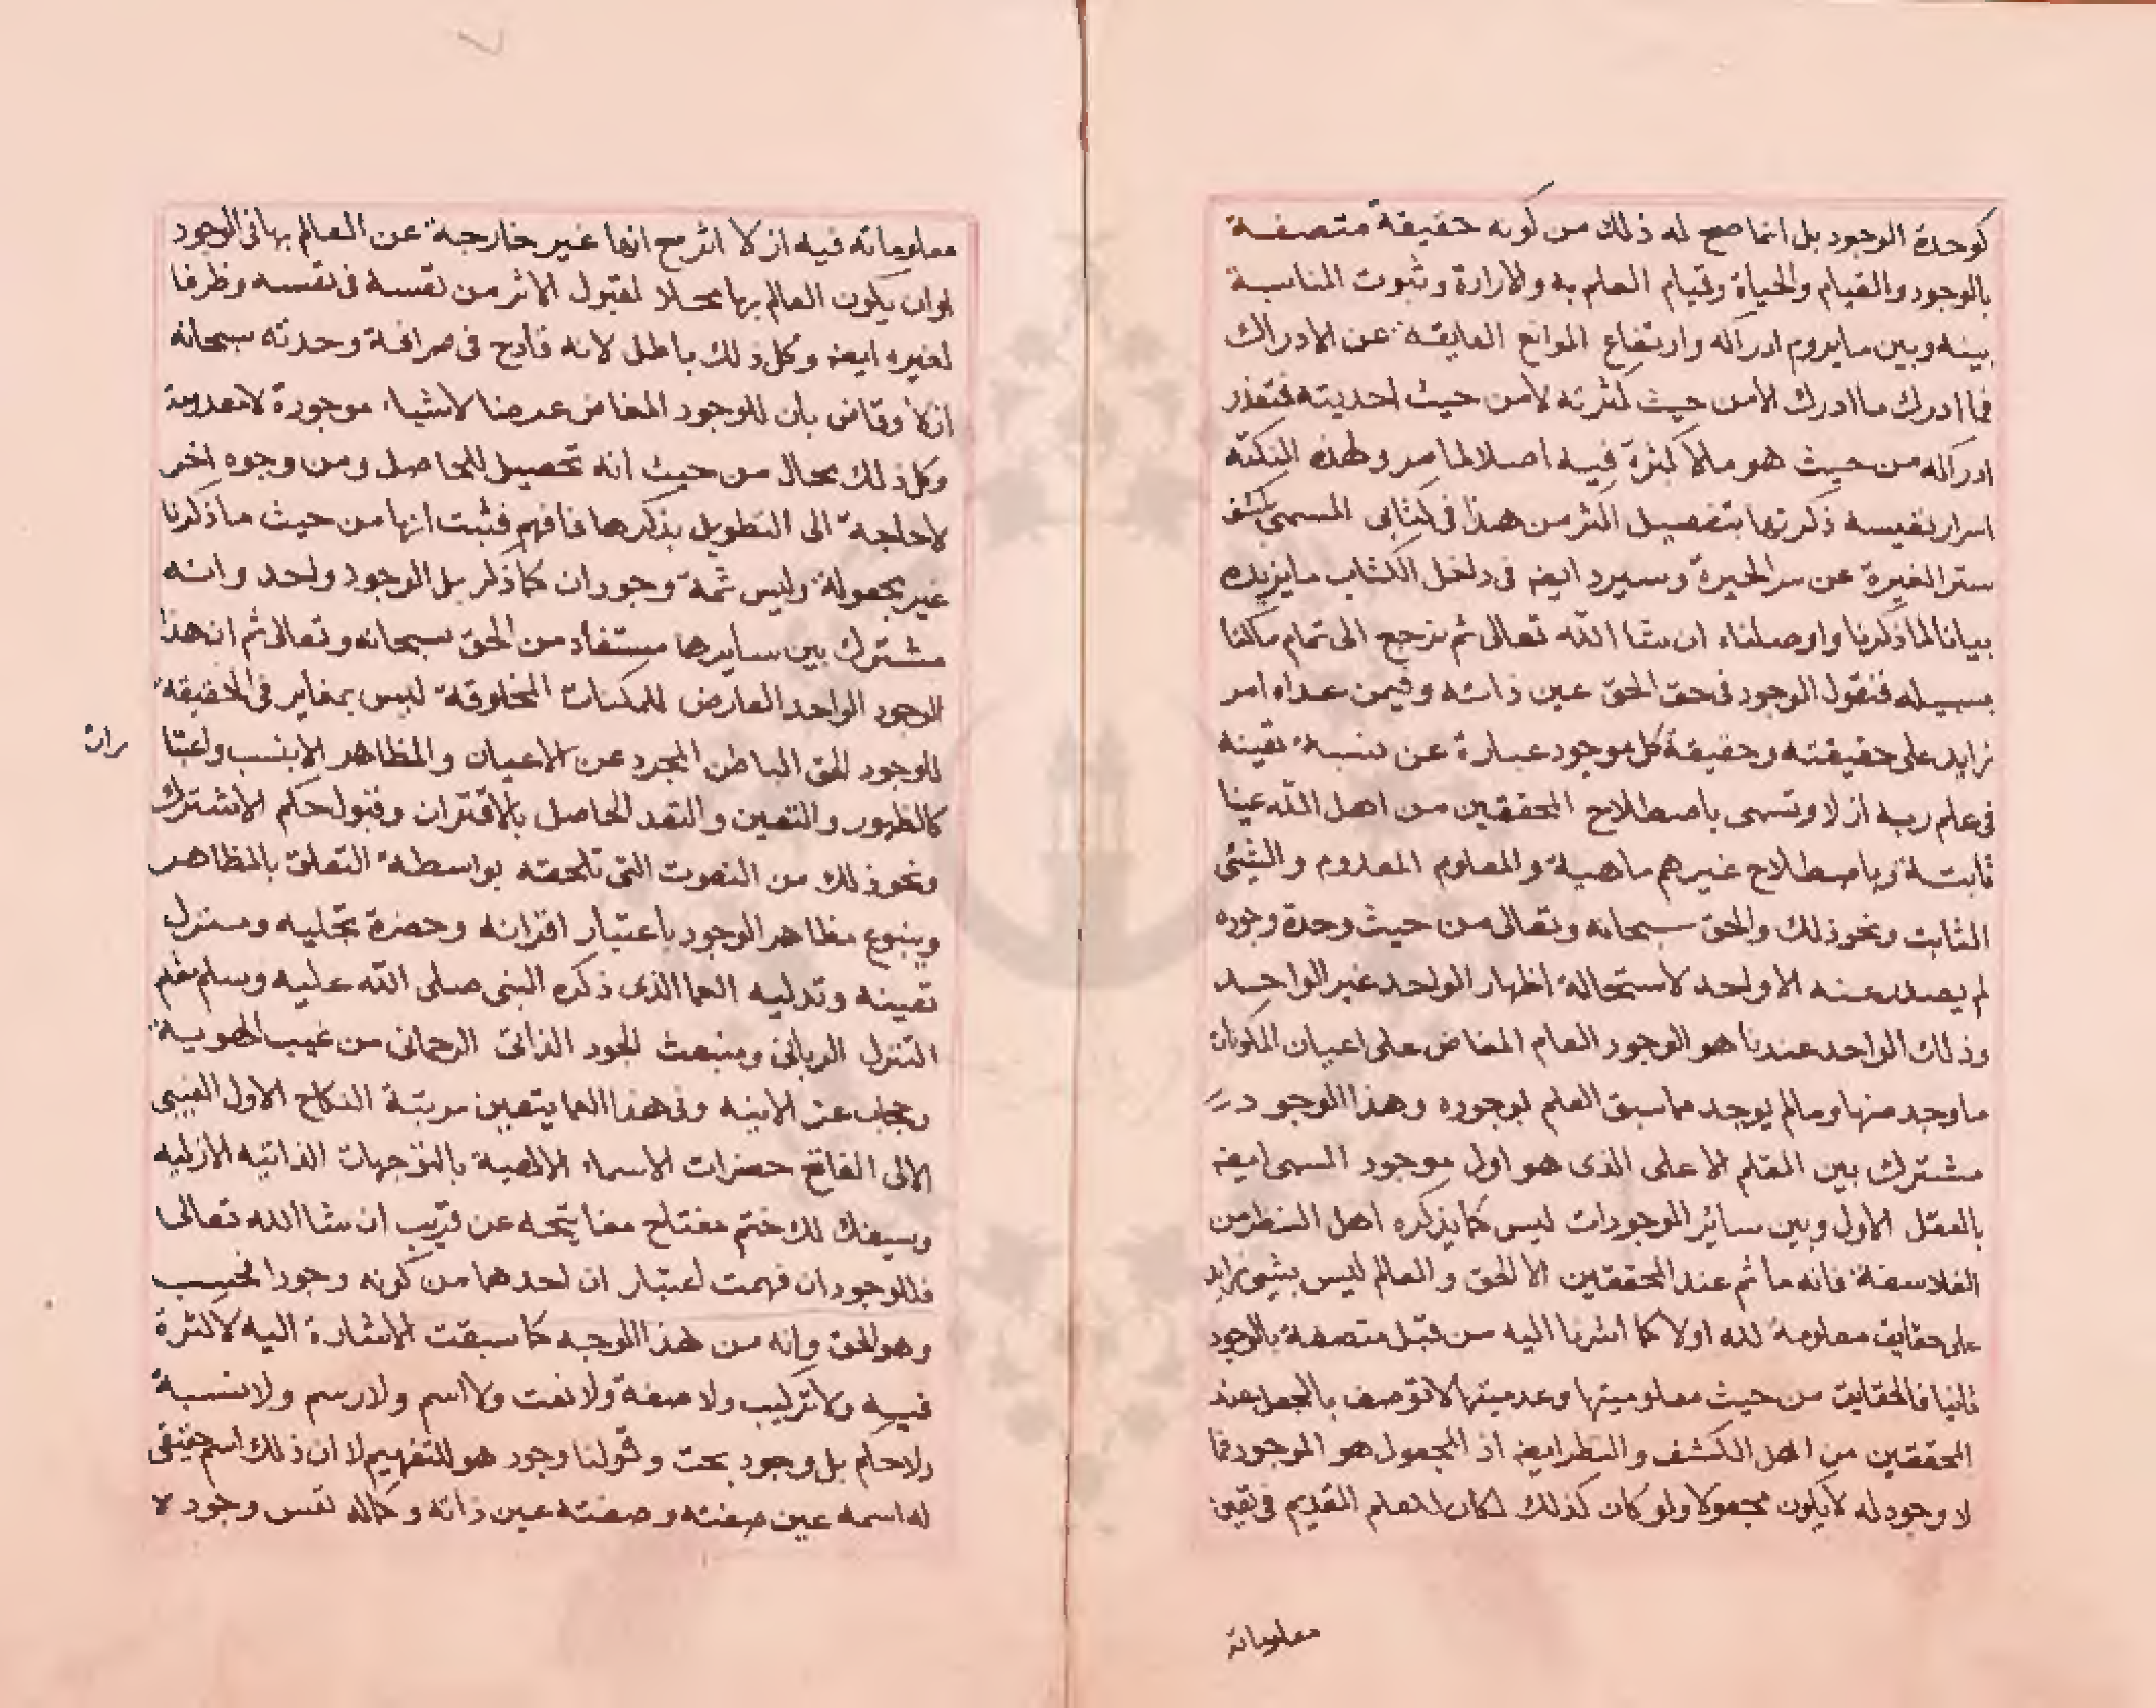 كوحدة الوجود بل انما صح له ذلك من كونه حقيقة متصفة
بالوجود والقيام والحياة وقيام العلم به والارادة وثبوت المناسبة
بينه وبين ما يروم ادراكه وارتفاع الموانع العايقة عن الادراك
فما ادرك ما ادرك الا من حيث كثرته لا من حيث احديته فتعذر
ادراكه من حيث هو ما لا كثرة فيه اصلا لما مر ولهذه النكتة
اسرار نفيسه ذكرتها بتفصيل اكثر من هذا في كتابى المسمى بكشف
ستر الغيرة عن سر الحيرة وسيرد ايضه فى داخل الكتاب ما يزيده
بيانا لما ذكرنا واوصلناه ان شا الله تعالى ثم نرجع الى تمام ماكنا
بسبيله فنقول الوجود فى حق الحق عين ذاته وفيمن عداه امر
زايد على حقيقته وحقيقة كل موجود عبارة عن نسبة تعينه
فى علم ربه ازلا وتسمى باصطلاح المحققين من اهل الله عينا
ثابتة وباصطلاح غيرهم ماهية والمعلوم المعدوم والشيئ
الثابت ونحو ذلك والحق سبحانه وتعالى من حيث وحدة وجوده
لم يصدر عنه الا واحد لاستحالة اظهار الواحد غير الواحد
وذلك الواحد عندنا هو الوجود العام المفاض على اعيان المكونات
ما وجد منها وما لم يوجد مما سبق العلم بوجوده وهذا الوجود
مشترك بين القلم الاعلى الذى هو اول موجود المسمى ايضه
بالعقل الاول وبين سائر الموجودات ليس كما يذكره اهل النظر من
الفلاسفة فانه ما ثم عند المحققين الا الحق والعالم ليس بشيئ زايد
على حقايق معلومة لله اولا كما اشرنا اليه من قبل متصفة بالوجود
ثانيا فالحقايق من حيث معلوميتها وعدميتها لا توصف بالجعل عند
المحققين من اهل الكشف والنظر ايضه اذ المجعول هو الموجود فما
لا وجود له لا يكون مجعولا ولو كان كذلك لكان للعلم القديم فى تعين
معلوماته
معلوماته فيه ازلا اثر مع انها غير خارجة عن العالم بها فى الوجود
لوان يكون العالم بها محلا لقبول الاثر من نفسه فى نفسه وظرفا
لغيره ايضه وكل ذلك باطل لانه قادح فى صرافة وحدته سبحانه
ازلا وقاض بان للوجود المفاض عرضا لاشياء موجودة لا معدومة
وكل ذلك محال من حيث انه تحصيل للحاصل ومن وجوه اخر
لاحاجة الى التطويل بذكرها فافهم فثبت انها من حيث ما ذكرنا
غير مجعولة وليس ثمة وجودان كما ذكر بل الوجود واحد وانه
مشترك بين سايرها مستفاد من الحق سبحانه وتعالى ثم ان هذا
الوجود الواحد العارض للمكنات المخلوقة ليس بمغاير فى الحقيقة
للوجود الحق الباطن المجرد عن الاعيان والمظاهر الا بنسب واعتبا
رات
كالظهور والتعين والتعدد الحاصل بالاقتران وقبول حكم الاشتراك
ونحو ذلك من النعوت التى تلحقه بواسطة التعلق بالمظاهر
وينبوع مظاهر الوجود باعتبار اقترانه وحضرة تجليه ومنزل
تعينه وتدليه العما الذى ذكره النبى صلى الله عليه وسلم مقام
التنزل الربانى ومنبعث الجود الذاتى الرحمانى من غيب الهوية
وحجاب عز الانيه وفى هذا العما يتعين مرتبة النكاح الاول الغيبى
الازلى الفاتح حضرات الاسماء الالهية بالتوجهات الذاتيه الازليه
وسيفك لك ختم مفتاح مفاتيحه عن قريب ان شا الله تعالى
فللوجود ان فهمت اعتبار ان احدهما من كونه وجودا فحسب
وهو الحق وانه من هذا الوجه كما سبقت الاشارة اليه لا كثرة
فيه ولا تركيب ولا صفة ولا نعت ولا اسم ولا رسم ولا نسبة
ولا حكم بل وجود بحت وقولنا وجود هو للتفهيم لا ان ذلك اسم حقيقى
له اسمه عين صفته وصفته عين ذاته وكماله نفس وجود لا